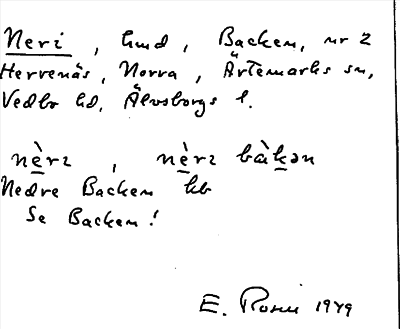 Neri, hmd, Backen, nr 2
Hervenäs, Norra, Ärtemarks sn,
Vedbo hd, Älvsborgs l.
nèrɪ, nèrɪ bàkən
Nedre Backen kb
Se Backen!
E. Rosri 1979